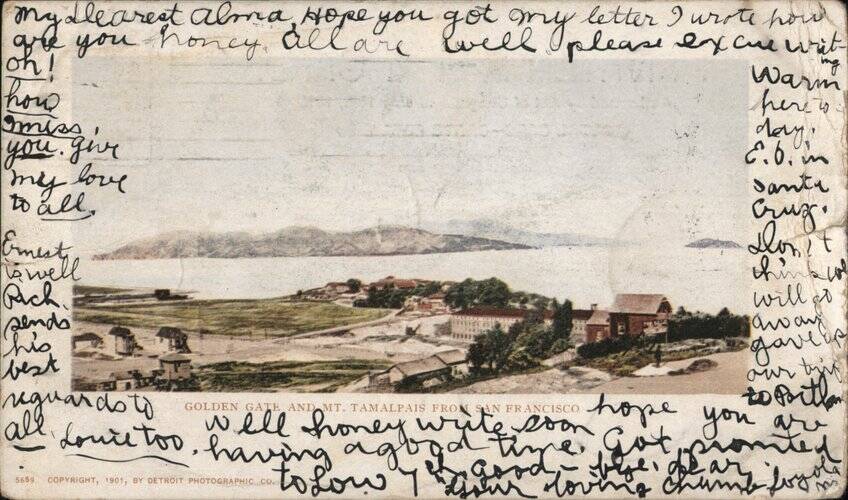 My Dearest Alma, Hope you got my letter I wrote how
are you honey. All are well please excuse writ-
ing
oh!
how
I miss,
you. give
my love
to all.
Ernest
is well
Rich.
sends
his
best
reguards to
all. Louie too.
Warm
here to-
day.
E. D. in
Santa
Cruz.
Don't
think
will go
away
gave up
our trip
to
GOLDEN GATE AND MT. TAMALPAIS FROM SAN FRANCISCO
Well honey write soon hope you are
having a good time. Got promoted
to Low 7th good-bye, dear,
Your loving chum
5689 COPYRIGHT, 1901, BY DETROIT PHOTOGRAPHIC CO.